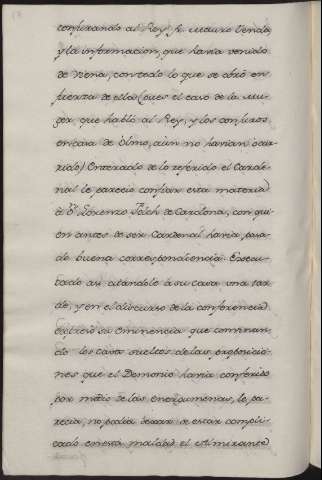 conjurando al Rey fr. Mauro Tenda,
y la informacion, que havia venido
de Viena, con todo lo que se obró en
fuerza de ella (pues el caso de la Mu-
ger, que habló al Rey, y los conjuros
en casa de Olmo, aun no havian ocur-
rido) Enterado de lo referido el Carde-
nal le pareció confiar esta materia
á Dn. Lorenzo Folch de Cardona, con qui-
en antes de ser Cardenal havia pasa-
do buena correspondencia. Execu-
tado asi citandole á su casa una tar-
de, y en el discurso de la conferencia
expresó su Eminencia que combinan-
do los casos sueltos de las proposicio-
nes que el Demonio havia conferido
por medio de las energumenas, le pa-
recia, no podia dexar de estar compli-
cado en esta maldad el Almirante